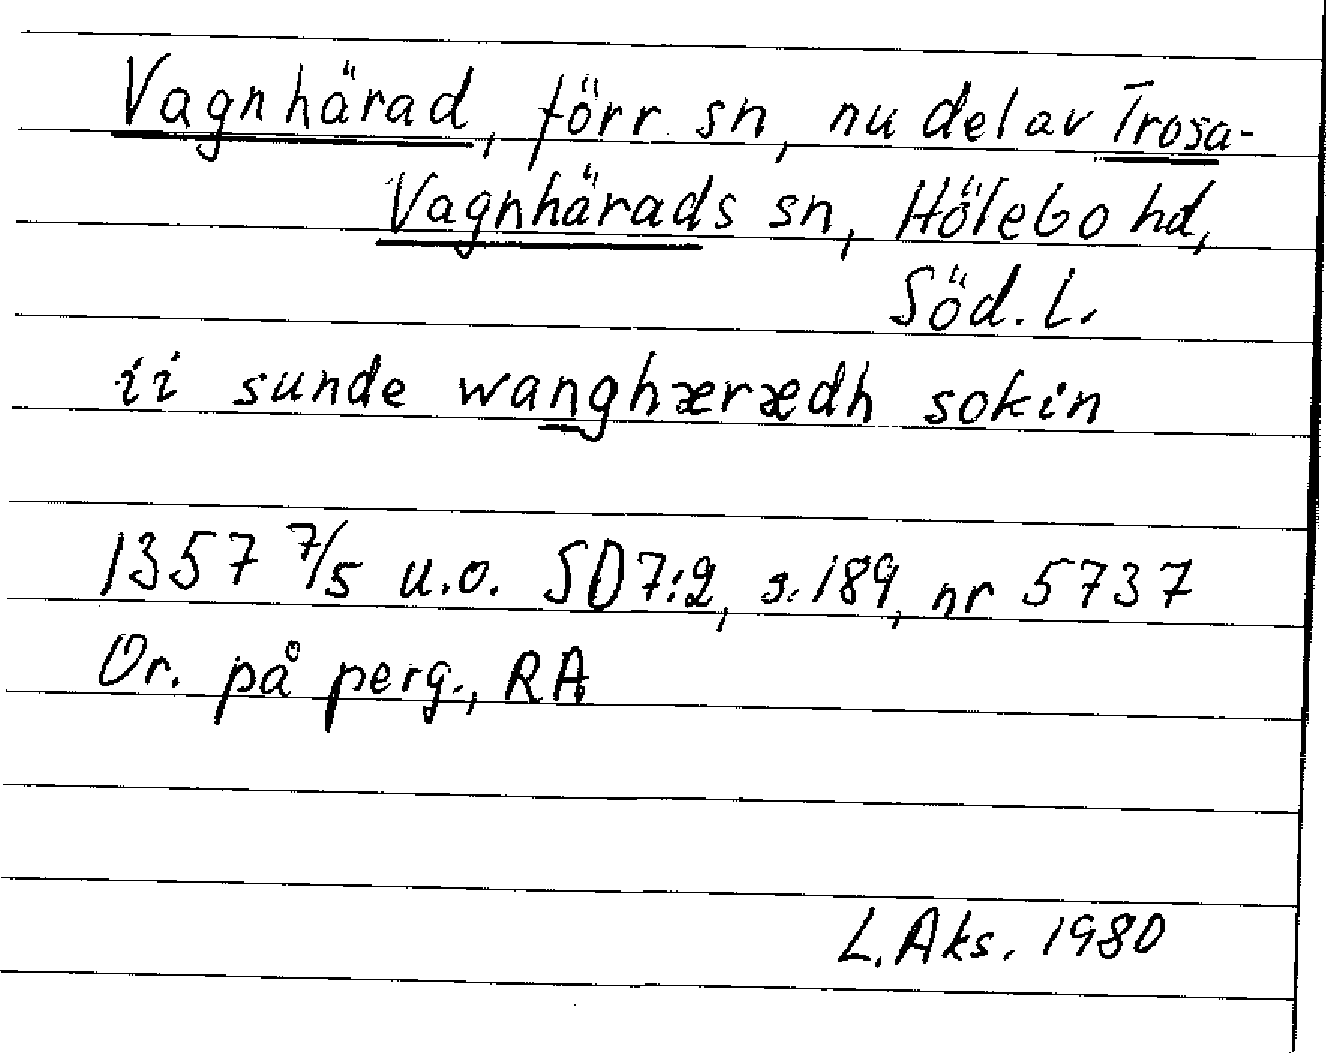 Vagnhärad, förr sn, nu del av Trosa-
Vagnhärads sn, Hölebo hd,
Söd. L.
ii sunde wanghærædh sokin
1357 7/5 u.o. SD 7:2, s. 189, nr 5737
Or. på perg., RA
L. Aks. 1980